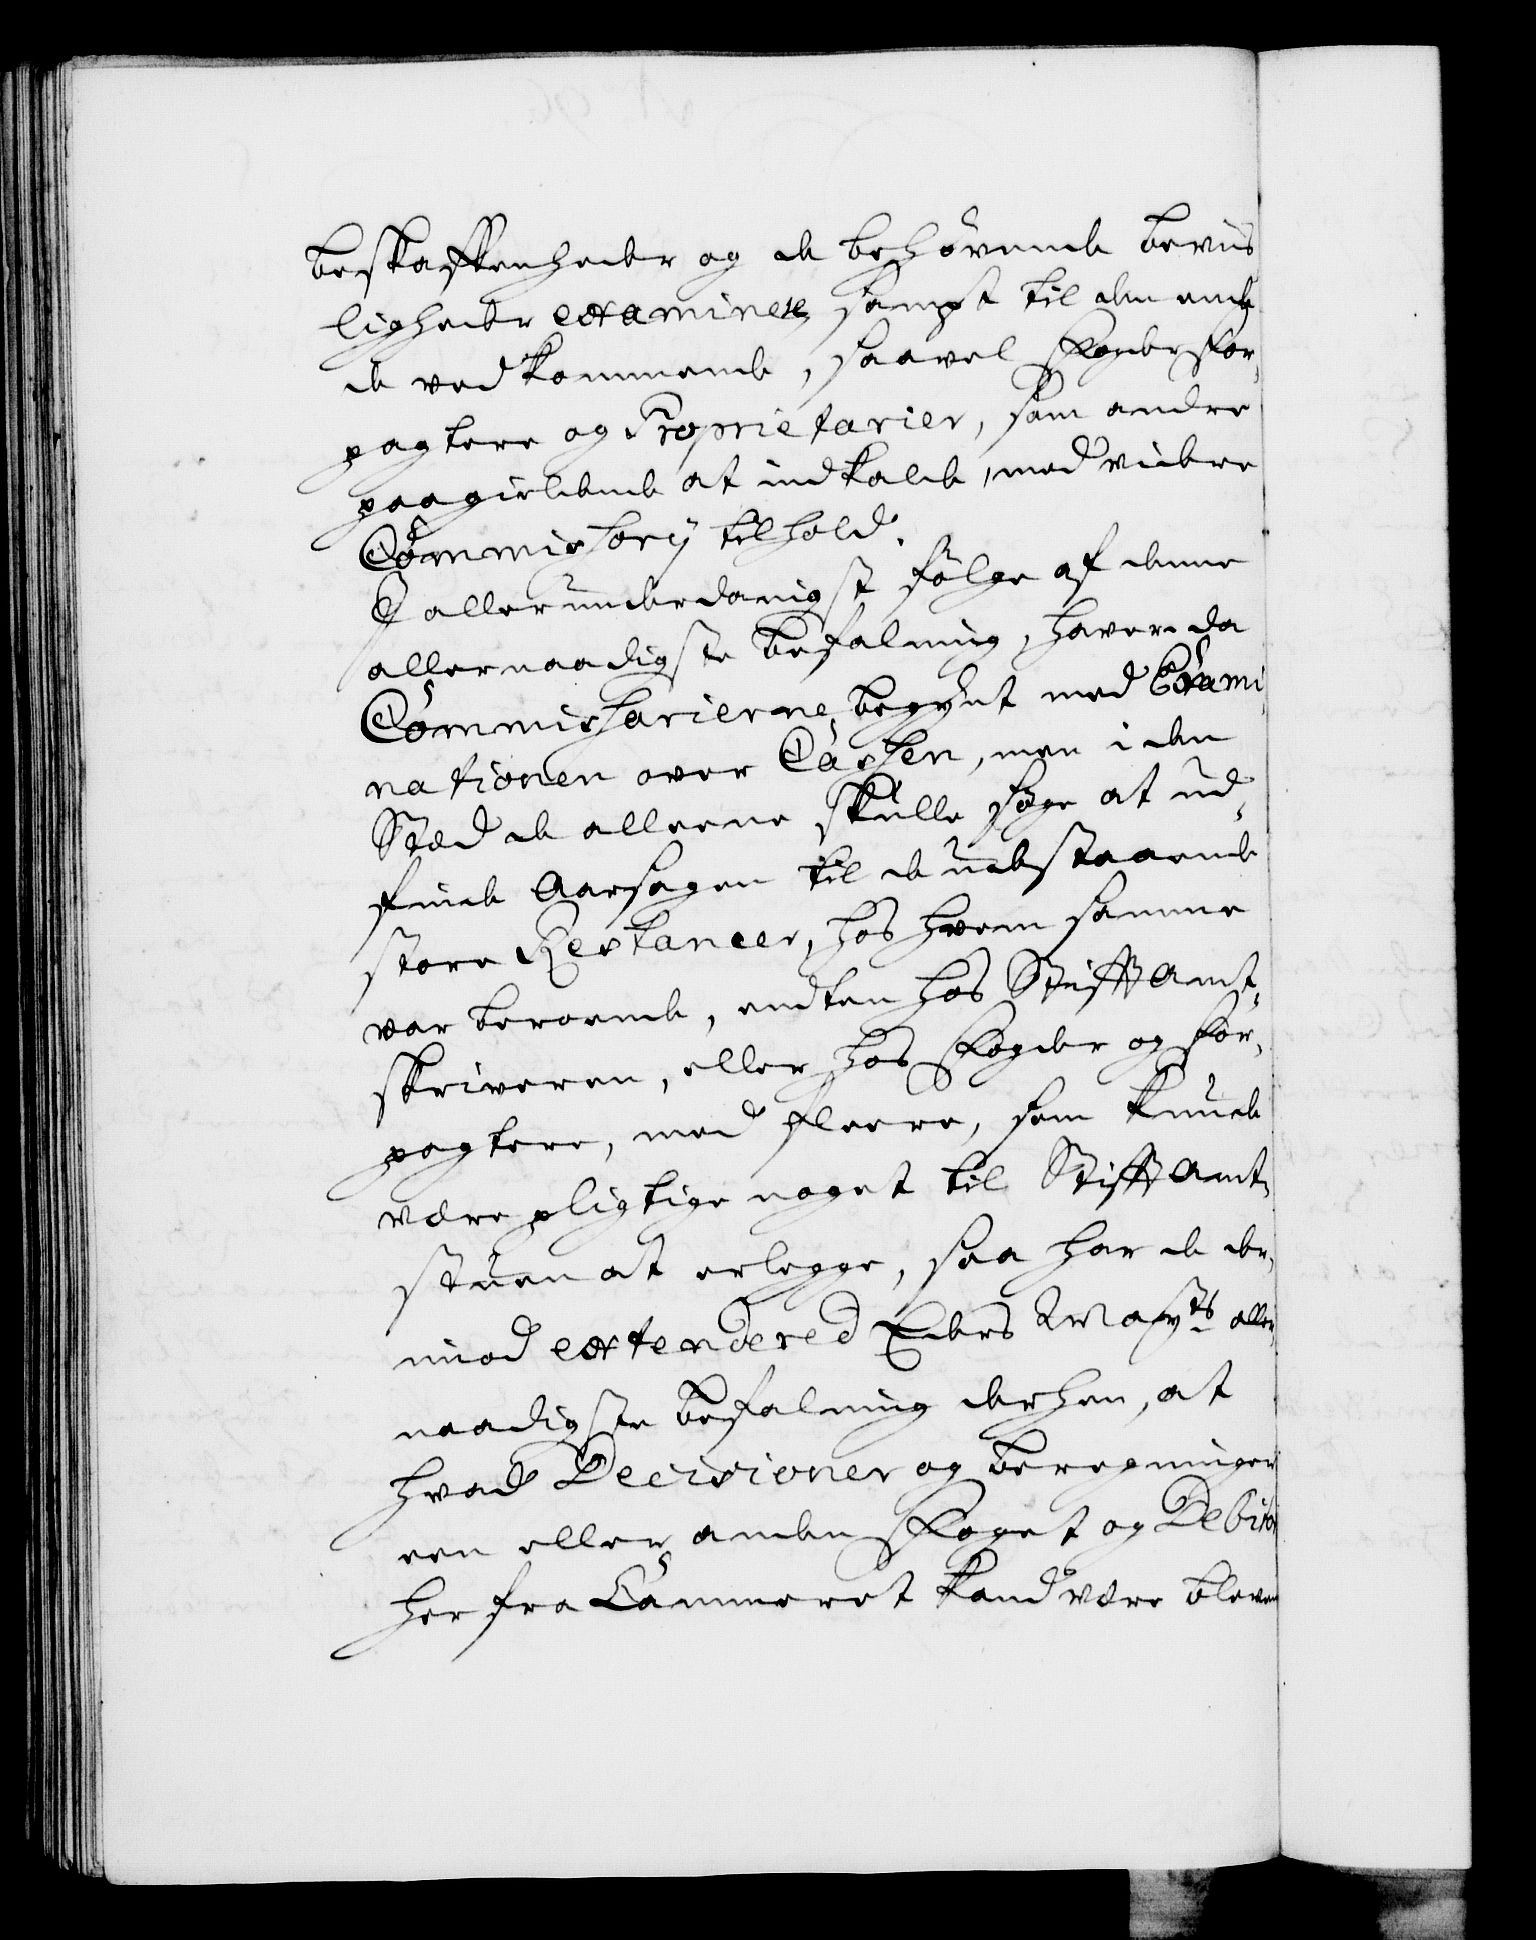 beskaffenheder og de behøvende beviis
ligheder examinere, sampt til den ende
de vedkommende, saavel Fogder, For-
pagtere og Proprietarier, som andre
paagieldende at indkalde, med videre
Commissorij tilhold.
I allerunderdanigst følge af denne
allernaadigste befalning, haver da
Commissarierne begynt med Exami-
nationen over Cassen, men i den
Stæd de alleene skulle søge at ud-
finde Aarsagen til de udestaaende
store Restancer, hos hvem samme
var beroende, endten hos Stifft Amt-
skriveren, eller hos Fogder og For-
pagtere, med fleere, som kunde
være pligtige noget til Stifft Amt-
stuen at erlegge, saa har de der-
imod extendered Eders Mayts aller-
naadigste befalning derhen, at
hvad Decisioner og beregninger
een eller anden Foget og Debitor
her fra Cammeret kand være bleven